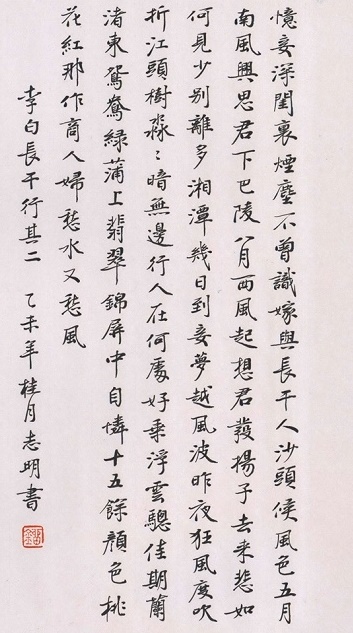 憶妾深閨裏煙塵不曾識嫁與長干人沙頭候風色五月
南風興思君下巴陵八月西風起想君發揚子去来悲如
何見少別離多湘潭幾日到妾夢越風波昨夜狂風度吹
折江頭樹淼〻暗無邊行人在何處好乘浮雲驄佳期蘭
渚東鴛鴦綠蒲上翡翠錦屏中自憐十五餘顏色桃
花紅那作商人婦愁水又愁風
李白長干行其二 乙未年桂月志明書